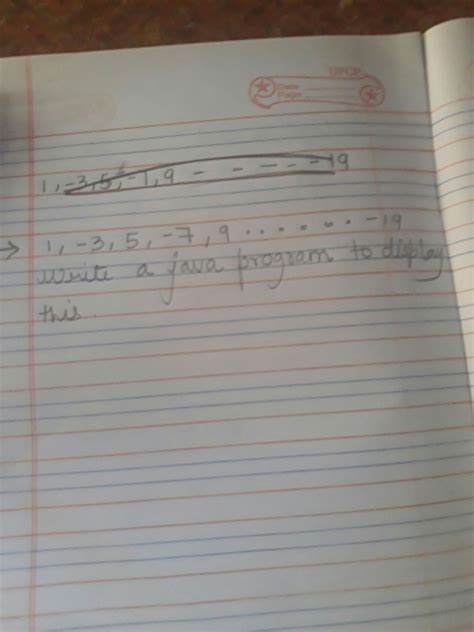 Date
Page
1, -3, 5, -7, 9 - - - - - -19
1, -3, 5, -7, 9 . . . . . . . -19
write a java program to display
this.